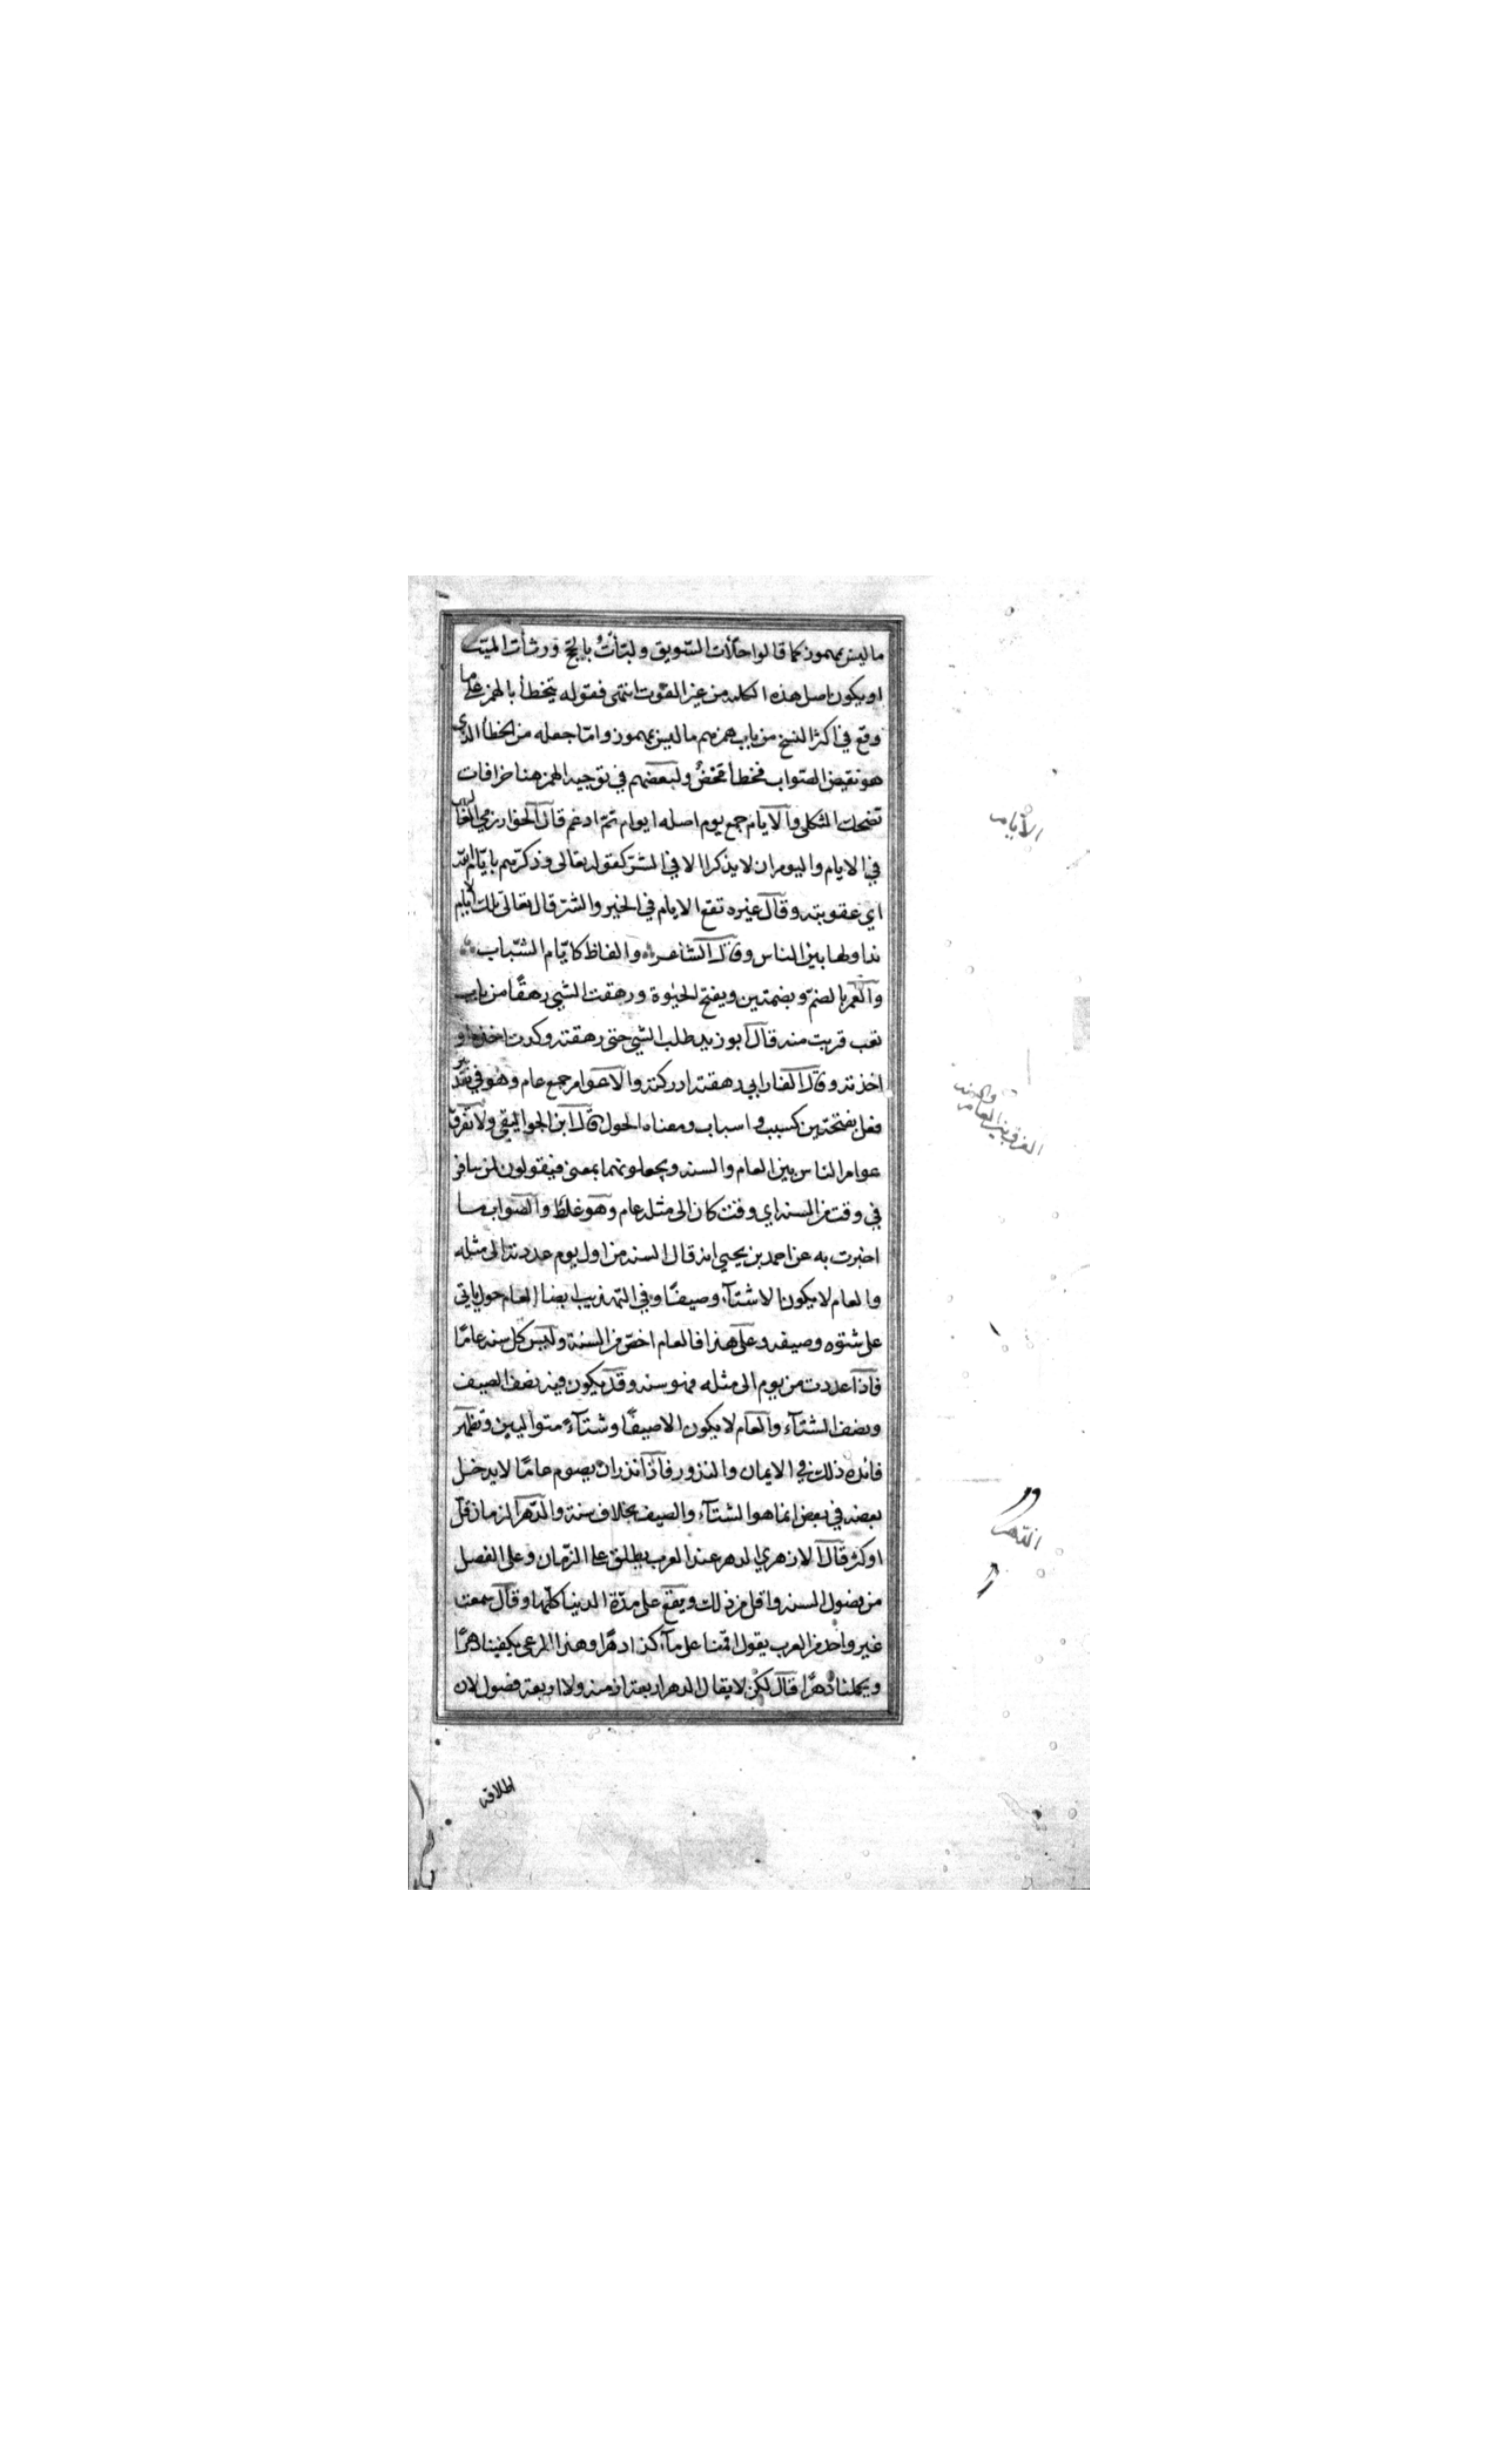 ما ليس بمهموز كما قالوا حلأت السّويق ولبّأتُ بالحجّ ورثأت الميّت
او يكون اصل هذه الكلمه من غير القوت انتهى فقوله يتخطأ بالهمز على ما
وقع في اكثر النسخ من باب همزهم ما ليس بمهموز وامّا جعله من الخطأ الذي
هو نقيض الصّواب فخطأ محضٌ ولبعضهم في توجيه الهمز هنا خرافات
تضحك الثكلى والايام جمع يوم اصله ايوام ثمّ ادغم قال الخوارزمي الغالب
في الايام واليوم ان لا يذكرا الا في الشرّ كقوله تعالى وذكّرهم بايّام الله
اي عقوبته وقال غيره تقع الايام في الخير والشرّ قال تعالى تلك الايام
نداولها بين الناس وقال الشاعر والفاظ كايّام الشّباب
والعمر بالضمّ وبضمتين ويفتح الحيوة ورهقت الشي رهقًا من باب
تعب قربت منه قال ابو زيد طلب الشي حتى رهقته وكدت اخذه او
اخذته وقال الفارابي رهقته ادركته والاعوام جمع عام وهو في تقدير
فعل بفتحتين كسبب واسباب ومعناه الحول قال ابن الجواليقي ولا تفرق
عوام الناس بين العام والسنه ويجعلونهما بمعنى فيقولون لمن سافر
في وقت من السنه اي وقت كان الى مثله عام وهو غلط والصّواب ما
اخبرت به عن احمد بن يحيى انه قال السنه من اول يوم عددته الى مثله
والعام لا يكون الا شتآء وصيفًا وفي التهذيب ايضا العام حول ياتي
على شتوه وصيفه وعلى هذا فالعام اخصّ من السنة وليس كل سنه عامًا
فاذا عددت من يوم الى مثله فهو سنه وقد يكون فيه نصف الصيف
ونصف الشتآء والعام لا يكون الا صيفًا وشتآءً متواليين وتظهر
فائده ذلك في الايمان والنذور فاذا نذر ان يصوم عامًا لا يدخل
بعضه في بعض انما هو الشتآء والصيف بخلاف سنة والدّهر الزمان قلّ
او كثر قال الازهري الدهر عند العرب يطلق على الزّمان وعلى الفصل
من فصول السنه واقل من ذلك ويقع على مدّة الدنيا كلّها وقال سمعت
غير واحد من العرب يقول اقمنا على مآء كذا دهرًا وهذا المرعى يكفينا دهرًا
ويحملنا دهرًا قال لكن لا يقال الدهر اربعة ازمنه ولا اربعة فصول لان
اطلاقه
الأيام
الفرق بين العام والسنه
الدّهر